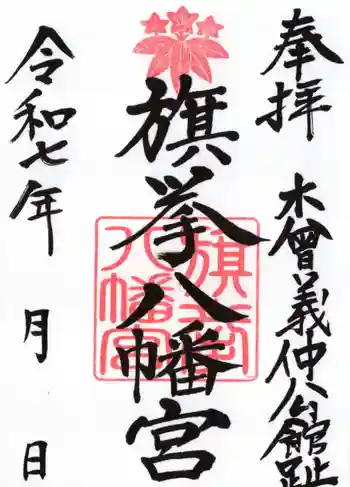 奉拝
木曾義仲公館趾
旗挙八幡宮
旗挙八幡宮
令和七年 月 日